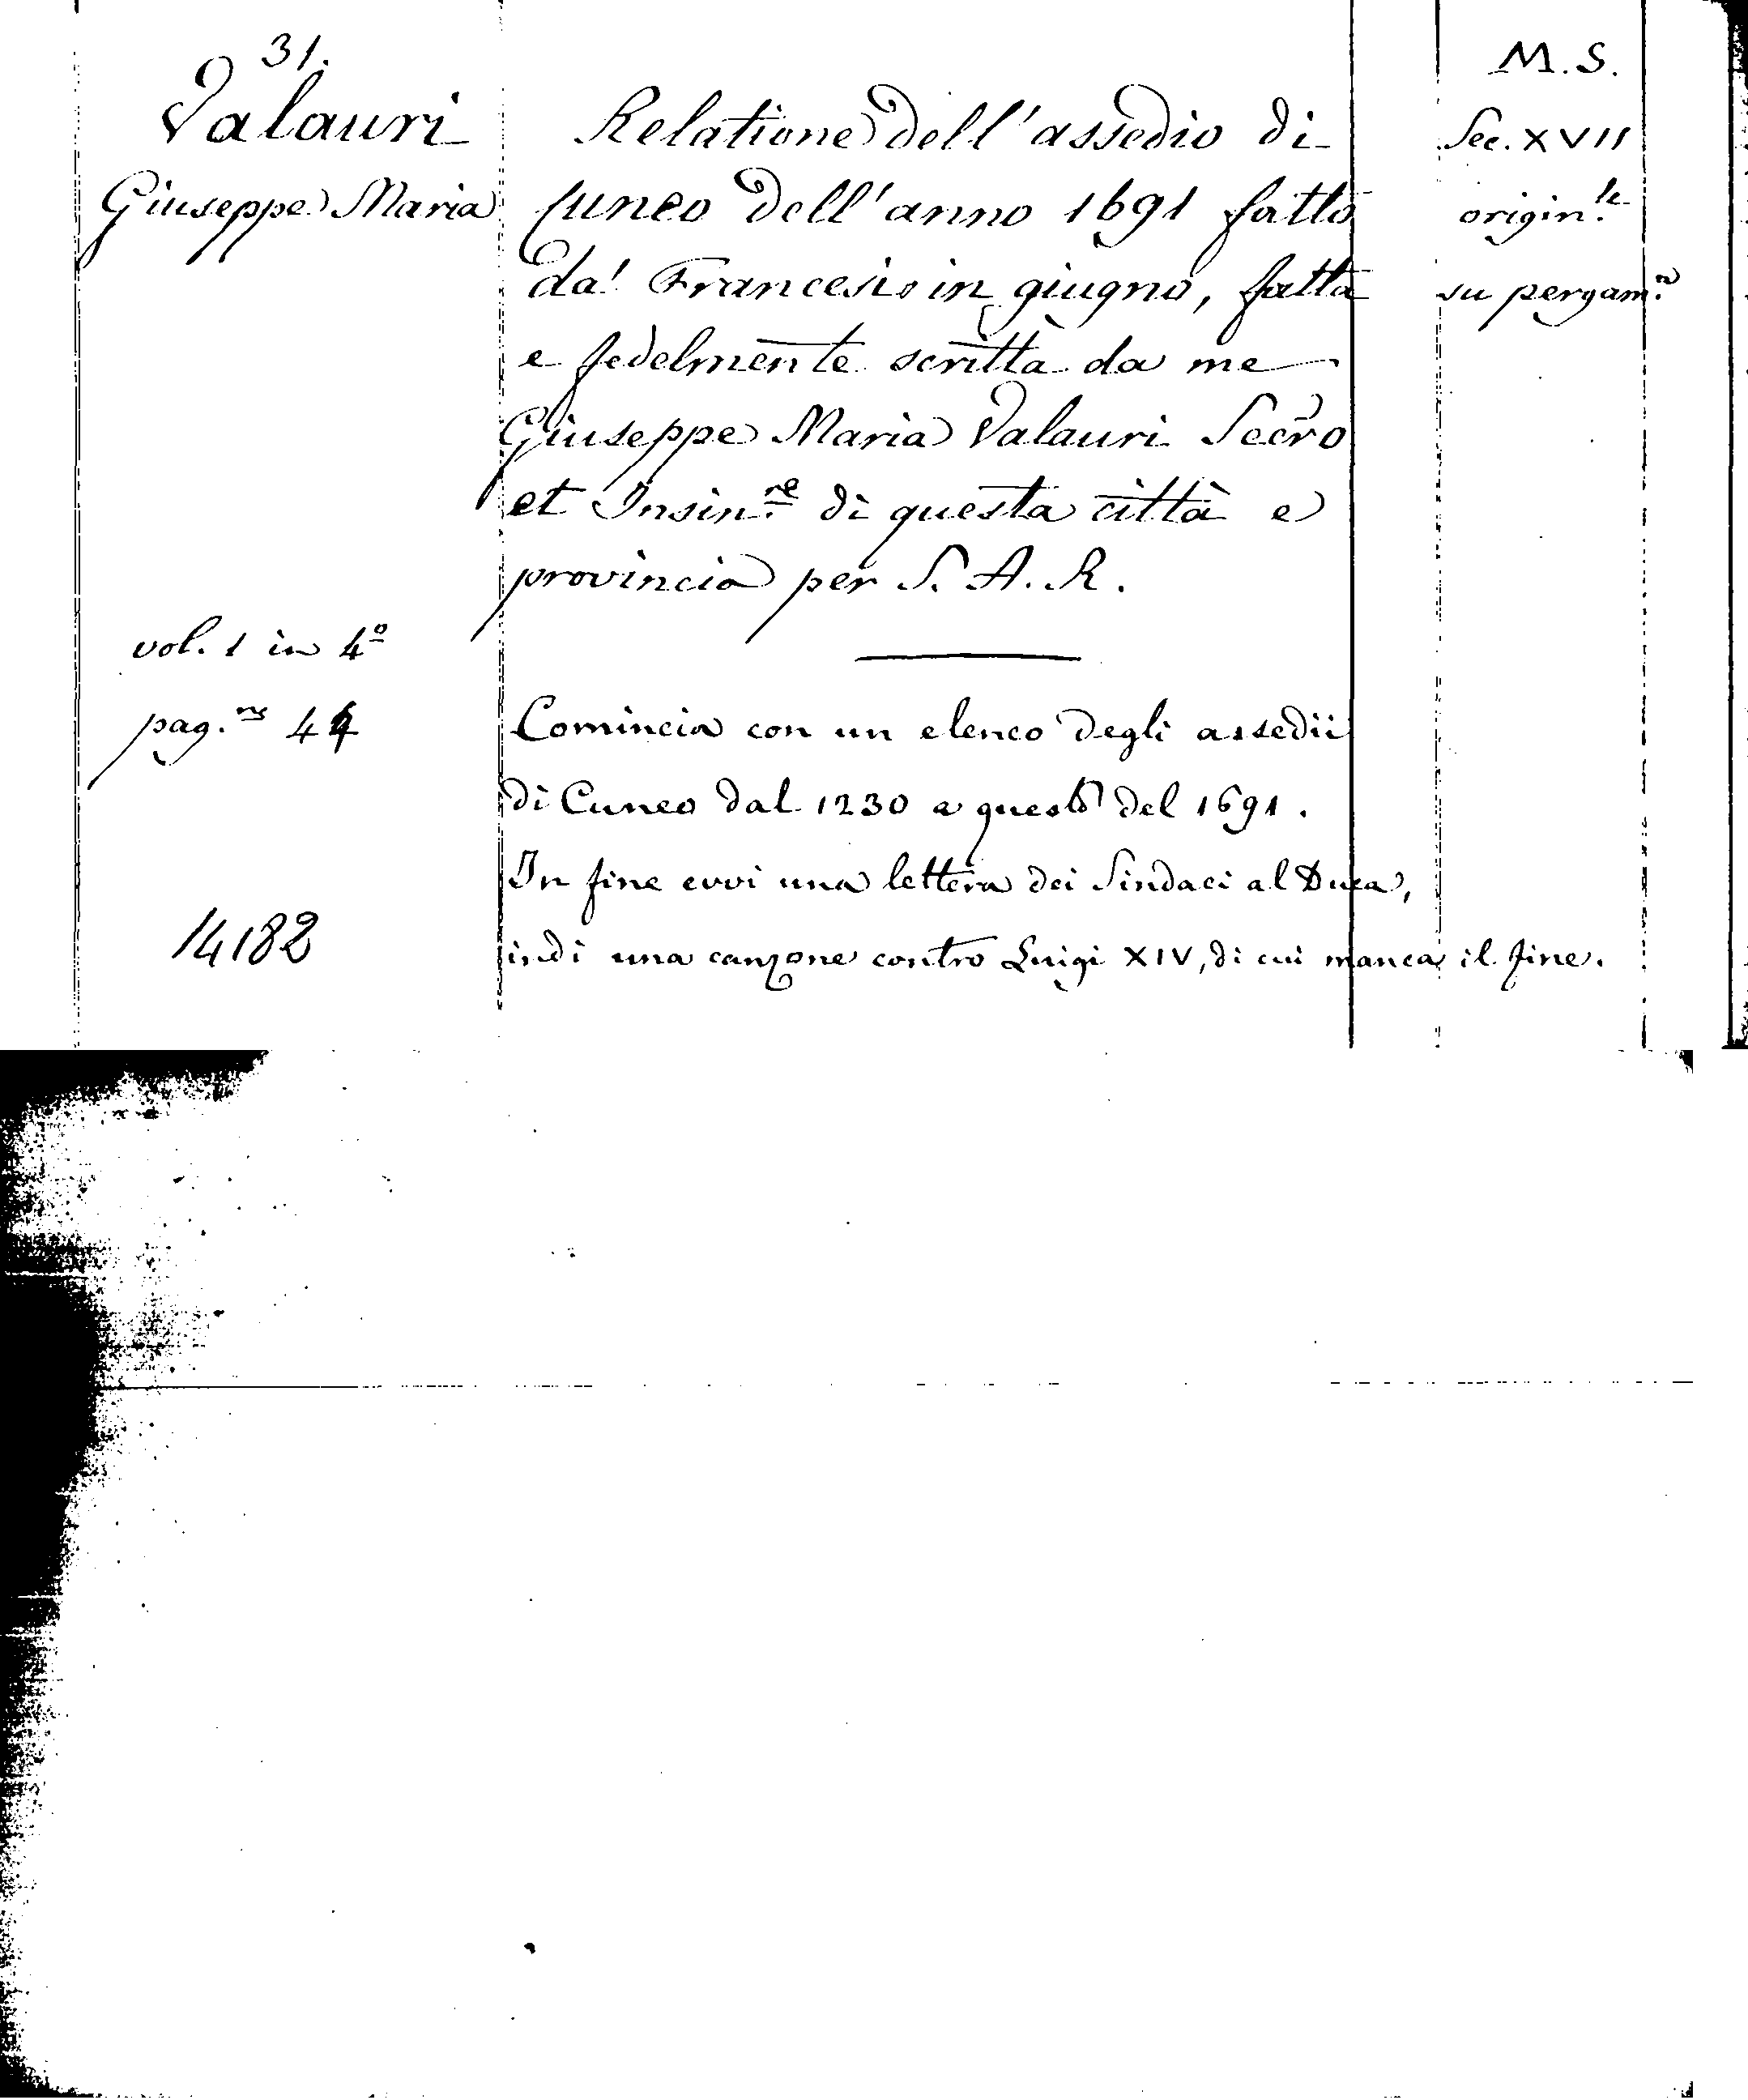 31.
Valauri
Giuseppe Maria
Relatione dell'assedio di
Cuneo dell'anno 1691 fatto
da' Francesi in giugno, fatta
e fedelmente scritta da me
Giuseppe Maria Valauri Secr̃o
et Insin.re di questa città e
provincia per S. A. R.
M.S.
Sec. XVII
origin.le
su pergam.a
vol. 1 in 4º
pag.ne
Comincia con un elenco degli assedii
di Cuneo dal 1230 a questo del 1691.
In fine evvi una lettera dei Sindaci al Duca,
indi una canzone contro Luigi XIV, di cui manca il fine.
14182